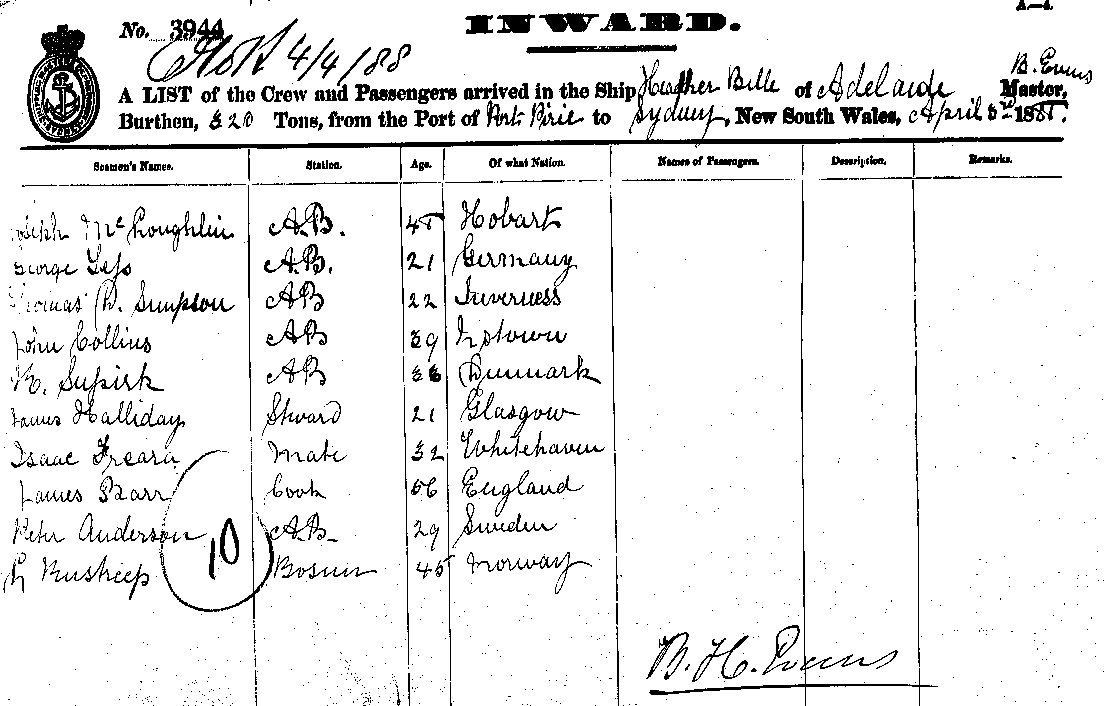 A—4.
No. 3944
INWARD.
4/4/88
B. Evans
A LIST of the Crew and Passengers arrived in the Ship Heather Belle of Adelaide Master,
Burthen, 320 Tons, from the Port of Port Pirie to Sydney, New South Wales, April 3rd 1888.
Seamen's Names. Station. Age. Of what Nation. Names of Passengers. Description. Remarks.
Joseph McLoughlin A.B. 45 Hobart
George A.B. 21 Germany
Thomas D. Simpson AB 22 Inverness
John Collins AB 39
AB 33 Denmark
James Halliday Steward 21 Glasgow
Isaac Freara Mate 32 Whitehaven
James Barr Cook 56 England
Peter Anderson A.B. 29 Sweden
Bosun 45 Norway
10
B. H. Evans